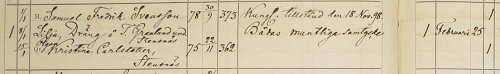 Samuel Fredrik Svensson 78 30/9 373 Kungl. tillstånd den 18 Nov. 98.
Lilja, Dräng å S. Stensnäs Bådas muntliga samtycke 1 Februari 25
Kristina Carlsdotter, 75 22/11 362
Stensnäs